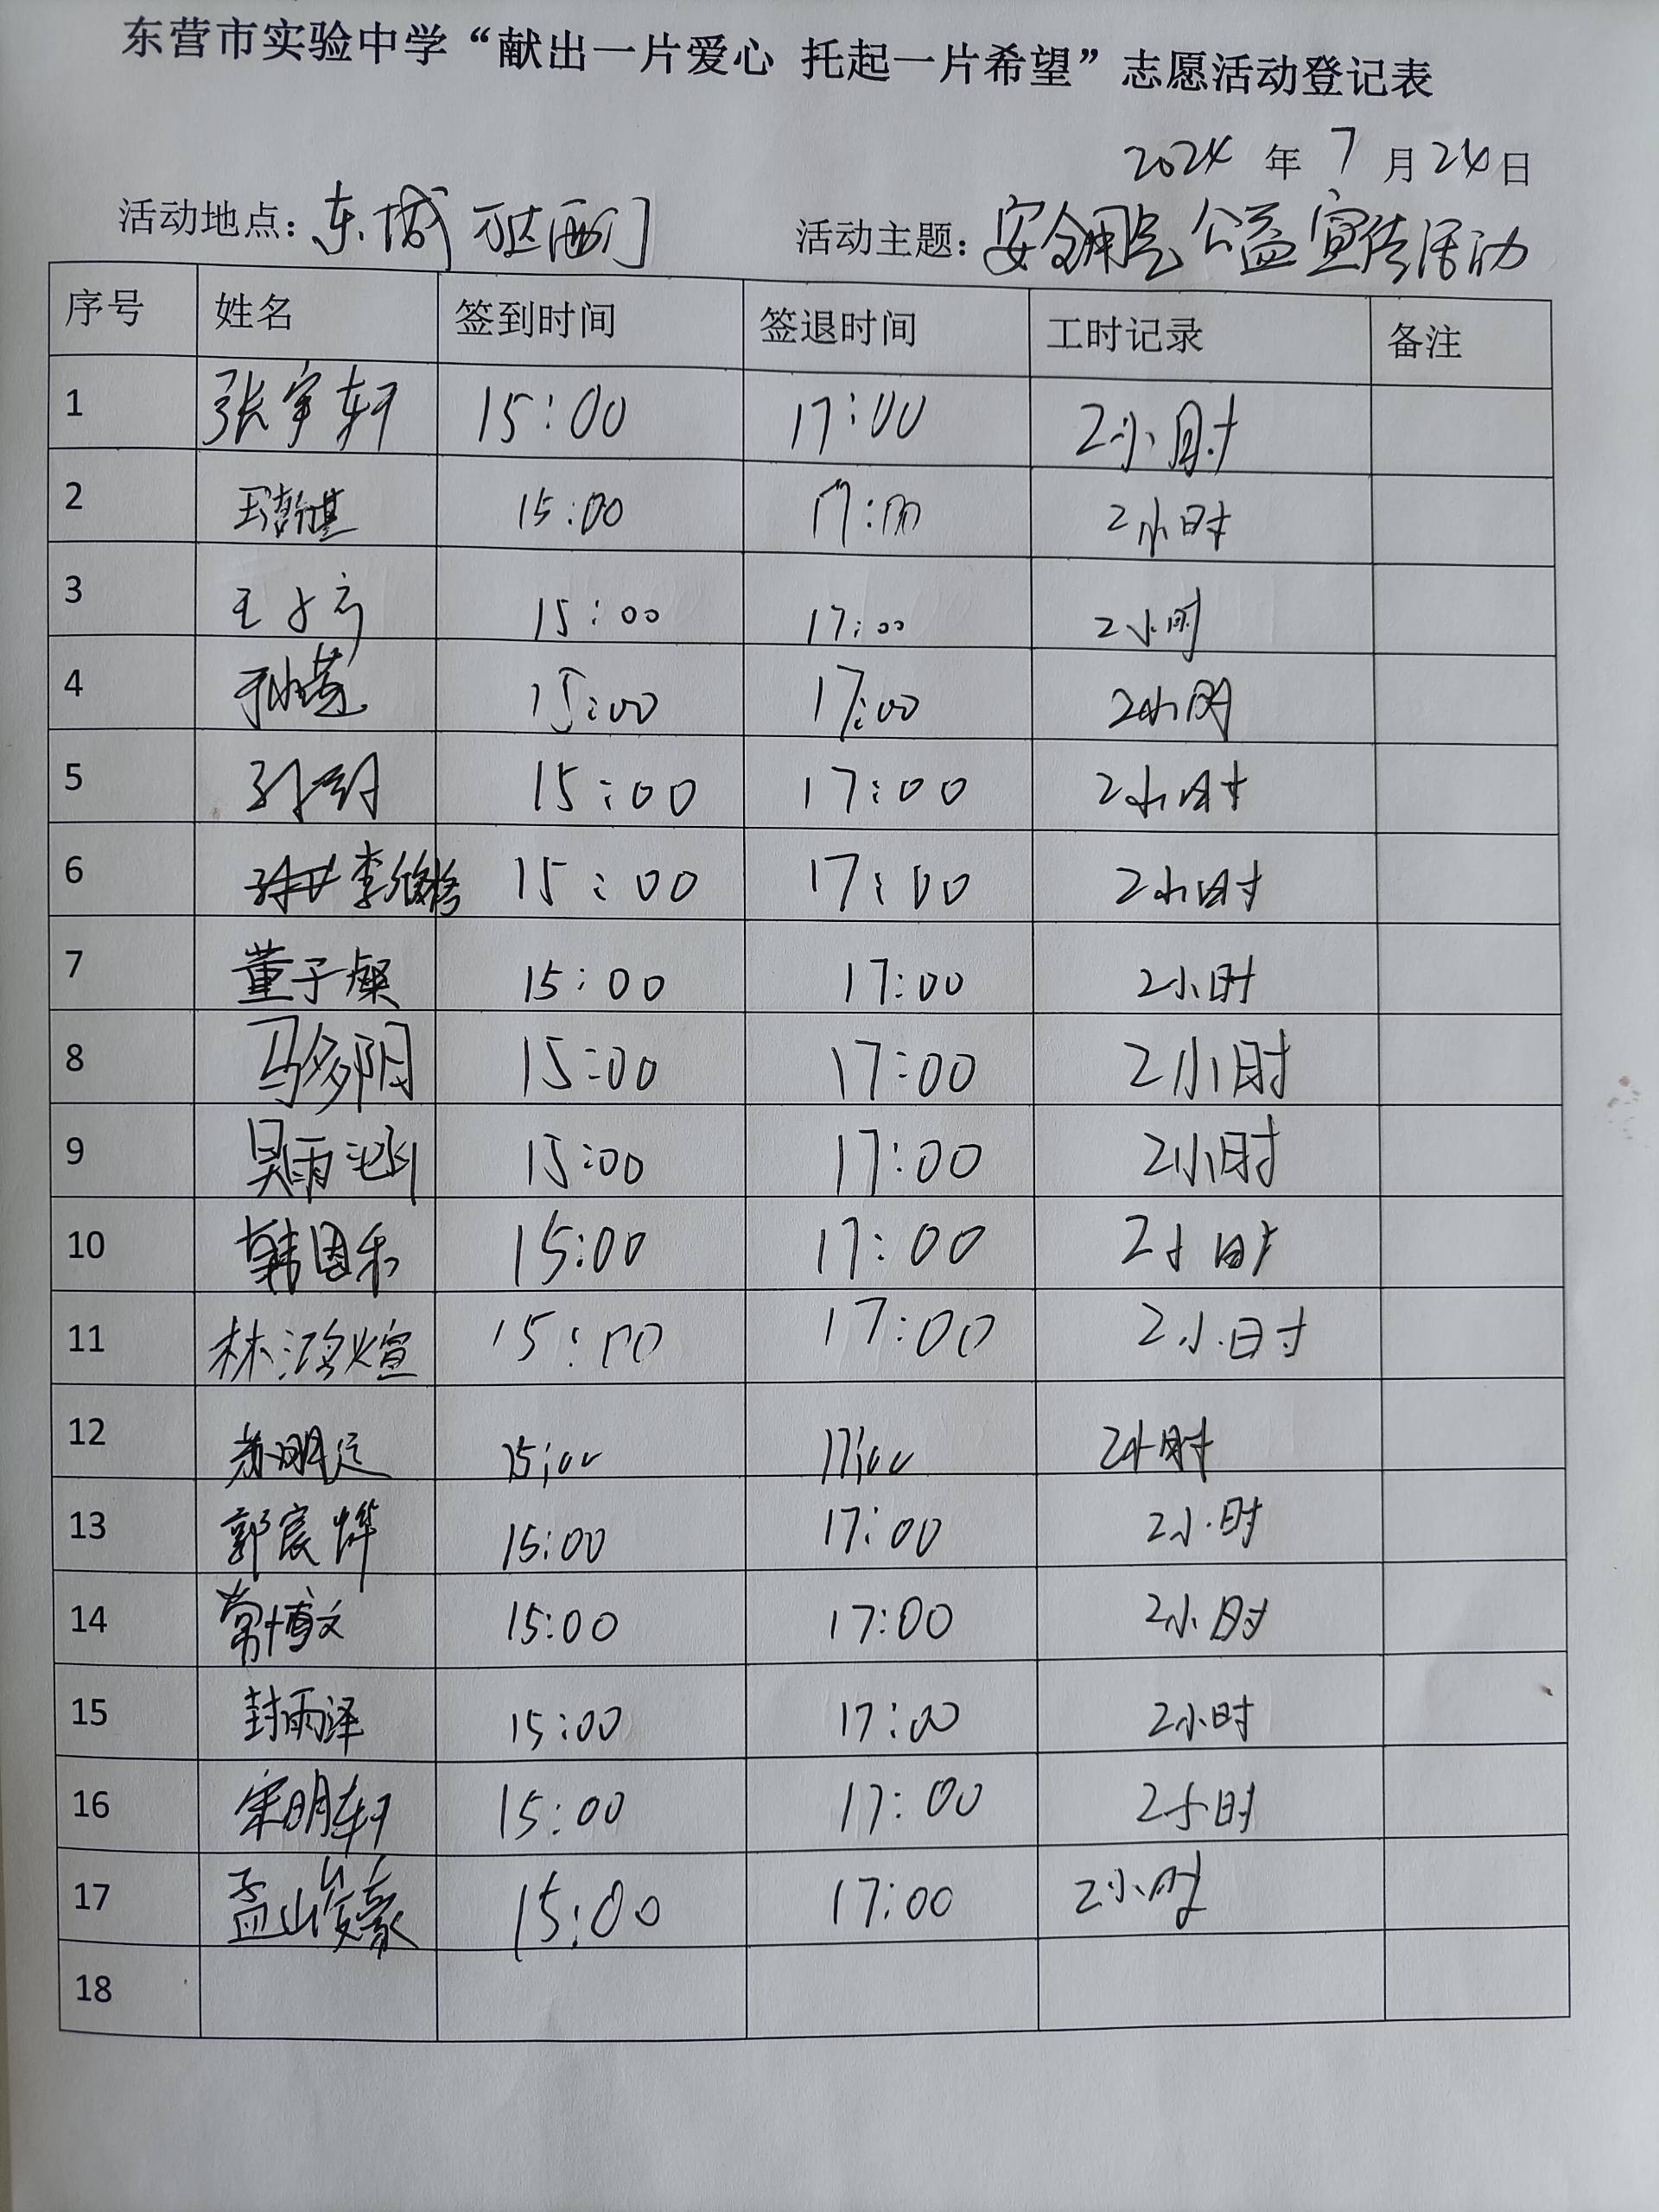 东营市实验中学“献出一片爱心 托起一片希望”志愿活动登记表
2024 年 7 月 24 日
活动地点：东城万达西门 活动主题：安全用气公益宣传活动
序号 姓名 签到时间 签退时间 工时记录 备注
1 张宇轩 15:00 17:00 2小时
2 15:00 17:00 2小时
3 王子亏 15:00 17:00 2小时
4 15:00 17:00 2小时
5 15:00 17:00 2小时
6 李俊 15:00 17:00 2小时
7 董子燊 15:00 17:00 2小时
8 马多阳 15:00 17:00 2小时
9 吴雨涵 15:00 17:00 2小时
10 韩恩禾 15:00 17:00 2小时
11 林鸿煊 15:00 17:00 2小时
12 15:00 17:00 2小时
13 郭宸烨 15:00 17:00 2小时
14 常博文 15:00 17:00 2小时
15 封雨泽 15:00 17:00 2小时
16 宋明轩 15:00 17:00 2小时
17 孟山峻豪 15:00 17:00 2小时
18